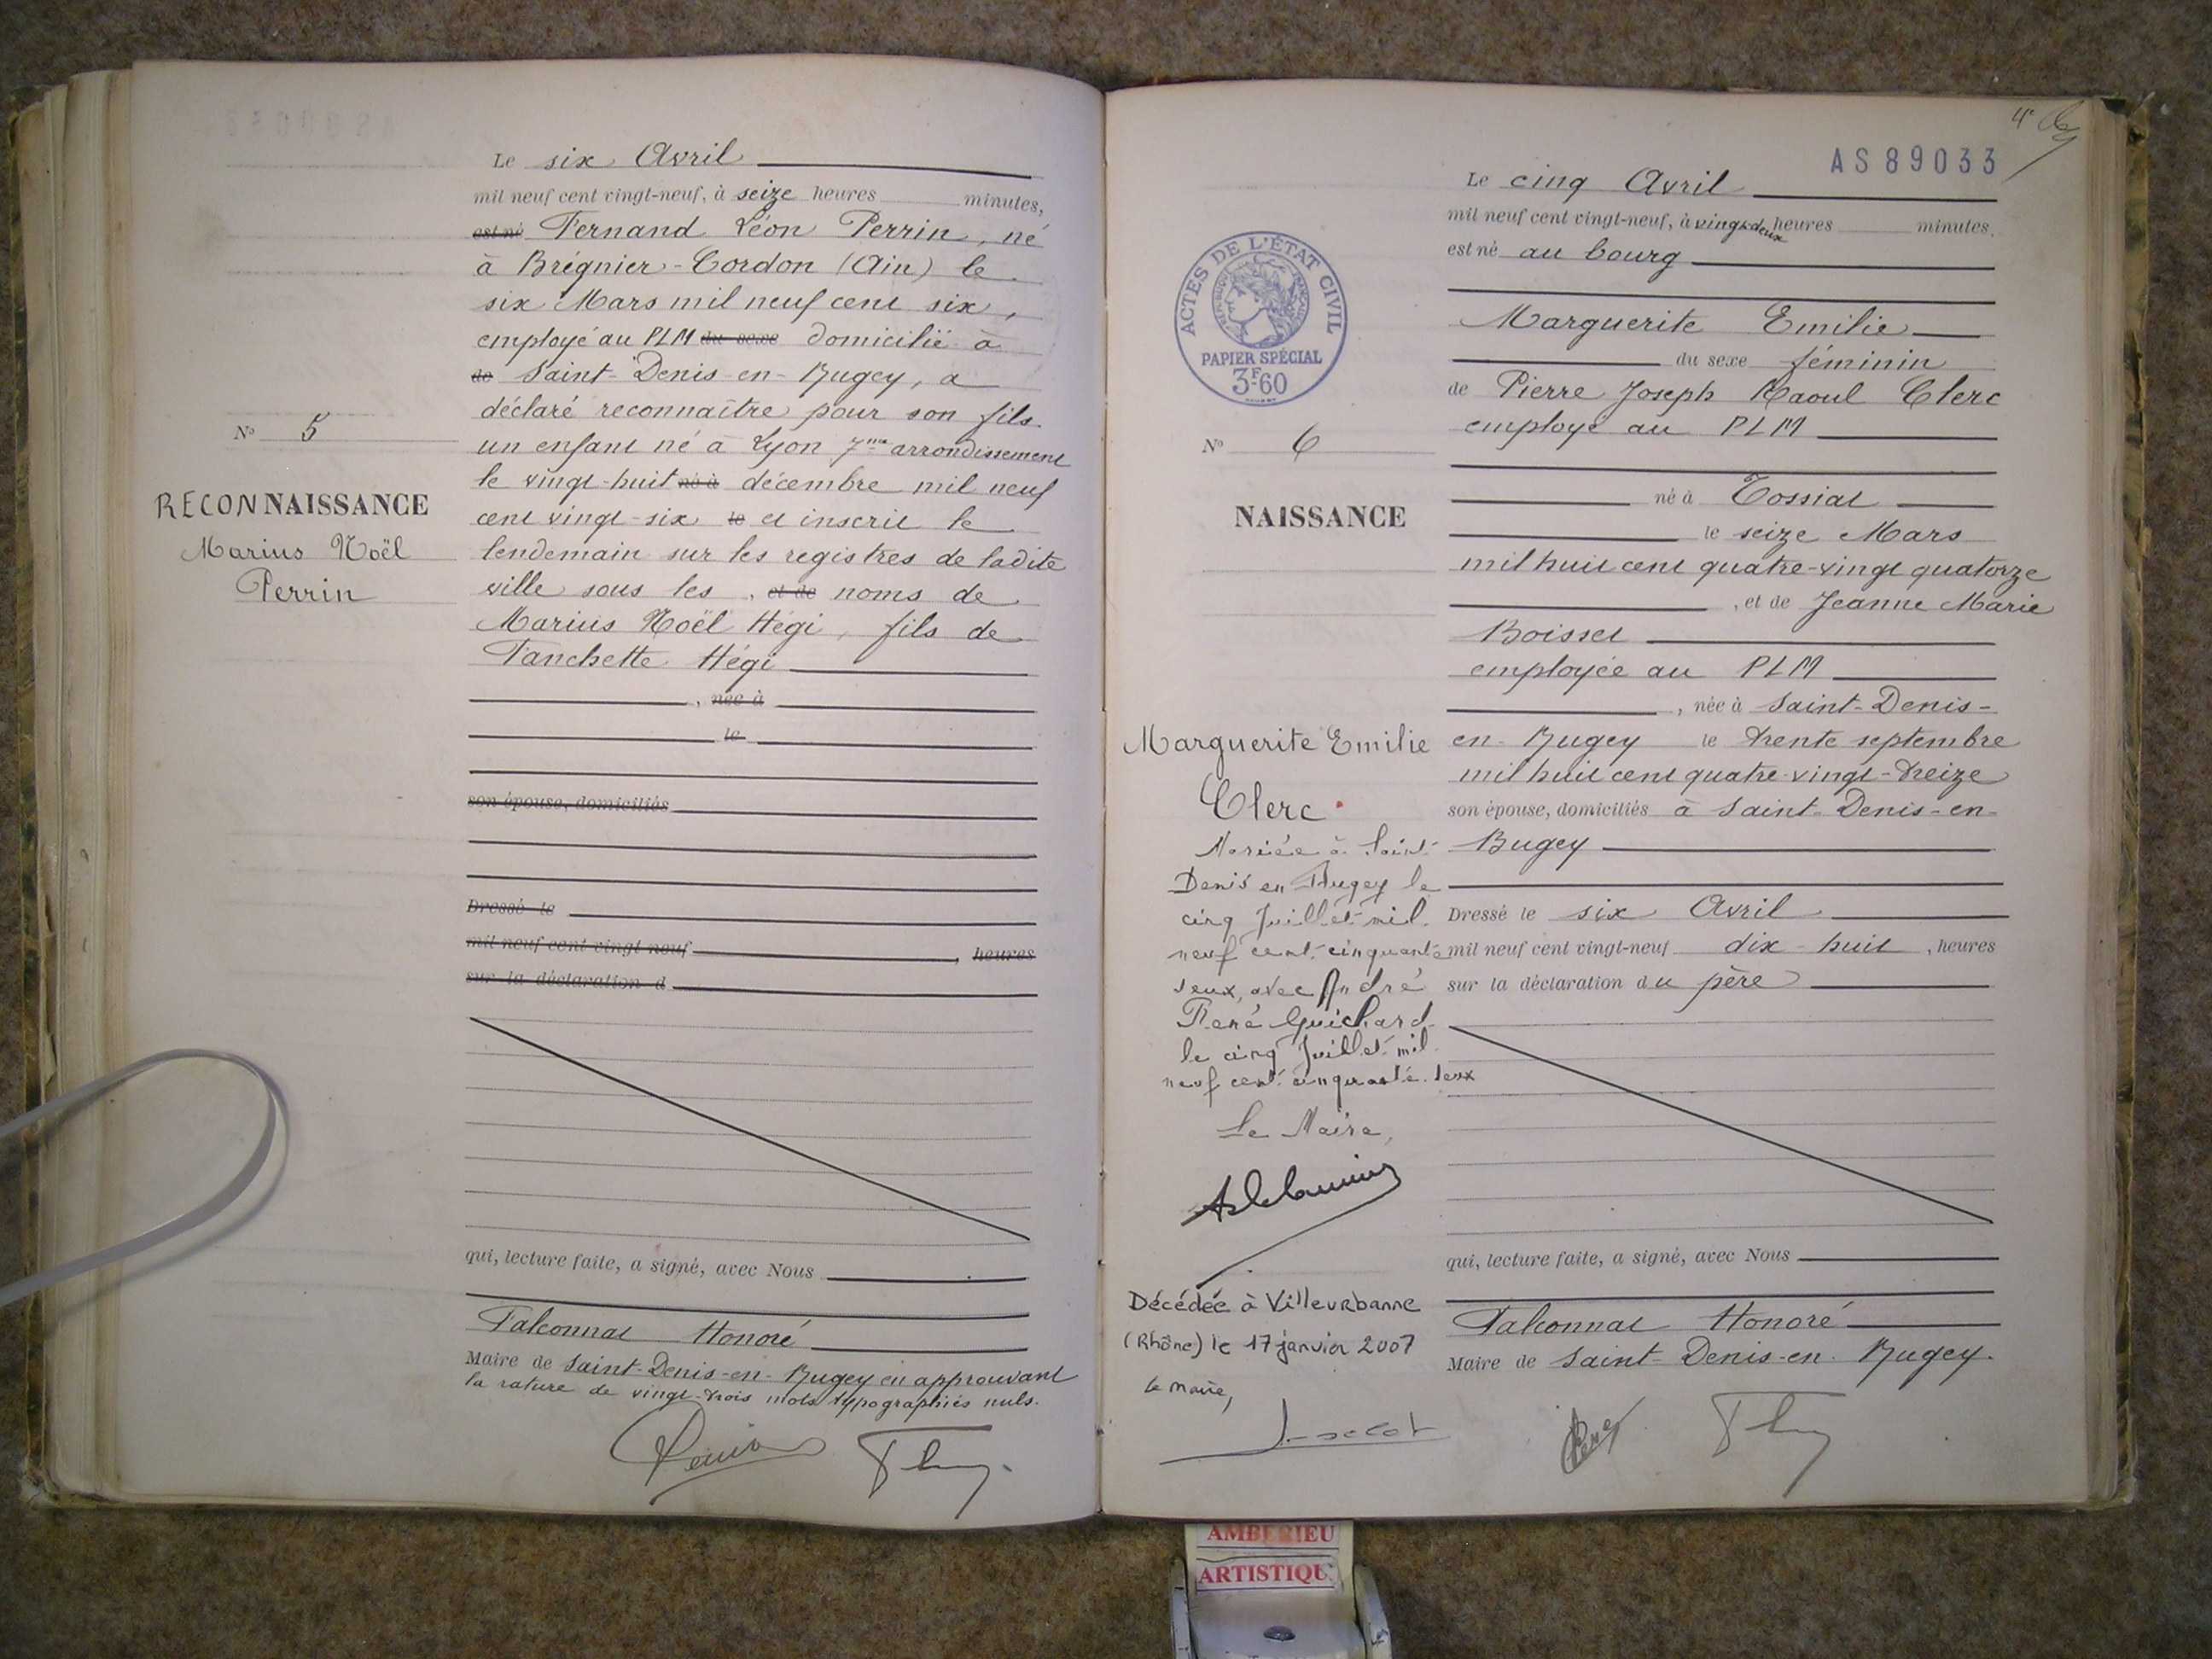 Le six Avril
mil neuf cent vingt-neuf, à seize heures minutes,
est né Fernand Léon Perrin, né
à Brégnier-Cordon (Ain) le
six Mars mil neuf cent six,
employé au PLM du sexe domicilié à
de Saint-Denis-en-Bugey, a
déclaré reconnaître pour son fils
un enfant né à Lyon 7me arrondissement
N° 5
le vingt-huit né à décembre mil neuf
cent vingt-six le et inscrit le
RECONNAISSANCE
Marius Noël
Perrin
lendemain sur les registres de ladite
ville sous les , et de noms de
Marius Noël Hégi, fils de
Fanchette Hégi
, née à
le
son épouse, domiciliés
Dressé le
mil neuf cent vingt-neuf , heures
sur la déclaration d
qui, lecture faite, a signé, avec Nous
Falconnat Honoré
Maire de Saint-Denis-en-Bugey en approuvant
la rature de vingt-trois mots typographiés nuls.
Perrin
AS89033
Le cinq Avril
mil neuf cent vingt-neuf, à vingt-deux heures minutes.
est né au bourg
Marguerite Emilie
du sexe féminin
de Pierre Joseph Raoul Clerc
employé au PLM
né à Tossiat
le seize Mars
mil huit cent quatre-vingt quatorze
, et de Jeanne Marie
Boisset
employée au PLM
, née à Saint-Denis-
en-Bugey le trente septembre
mil huit cent quatre-vingt-treize
son épouse, domiciliés à Saint-Denis-en-
Bugey
Dressé le six Avril
mil neuf cent vingt-neuf dix-huit , heures
sur la déclaration du père
qui, lecture faite, a signé, avec Nous
Falconnat Honoré
Maire de Saint-Denis-en-Bugey.
ACTES DE L'ÉTAT CIVIL
RÉPUBLIQUE FRANÇAISE
PAPIER SPÉCIAL
3F.60
N° 6
NAISSANCE
Marguerite Emilie
Clerc
Mariée à Saint-
Denis en Bugey le
cinq Juillet mil
neuf cent cinquante
deux, avec André
René Guichard
le cinq Juillet mil
neuf cent cinquante-deux
Le Maire,
Décédée à Villeurbanne
(Rhône) le 17 janvier 2007
Le maire,
AMBERIEU
ARTISTIQU